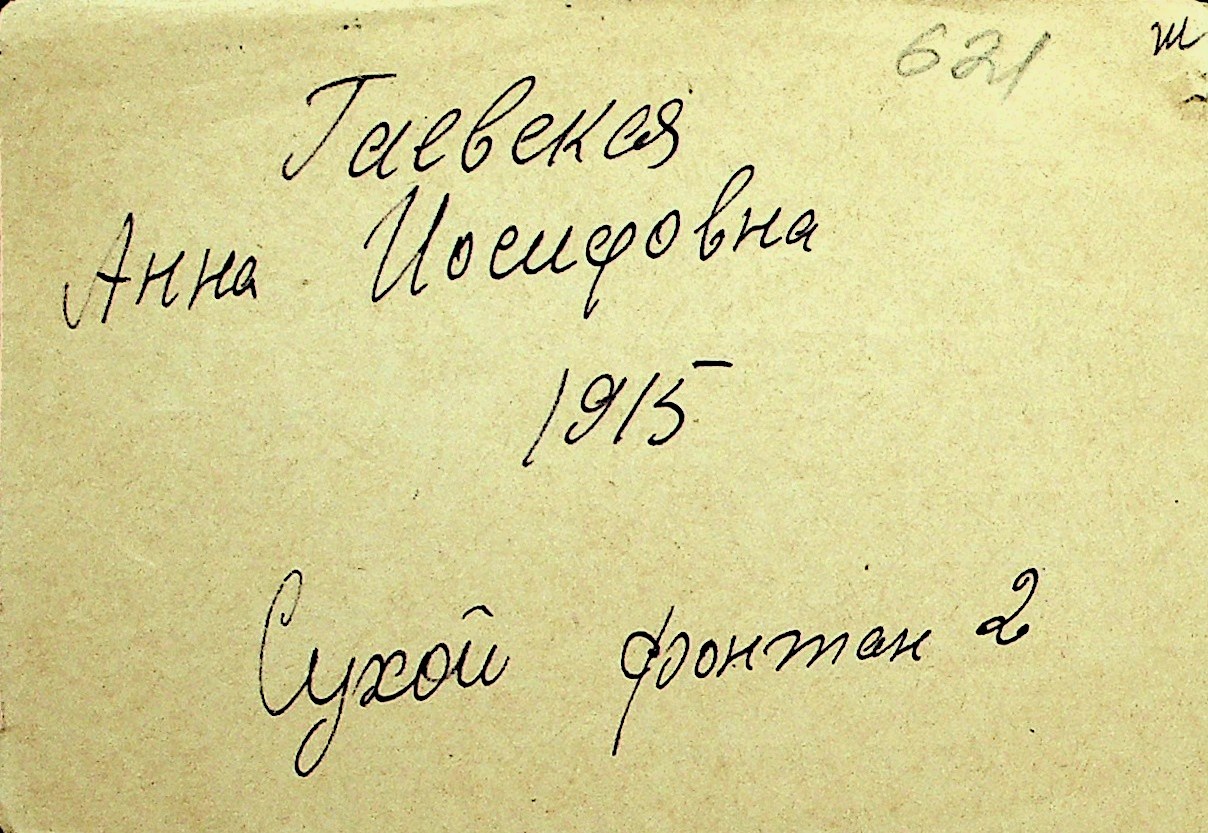 621 ш
Гаевская
Анна Иосифовна
1915
Сухой фонтан 2